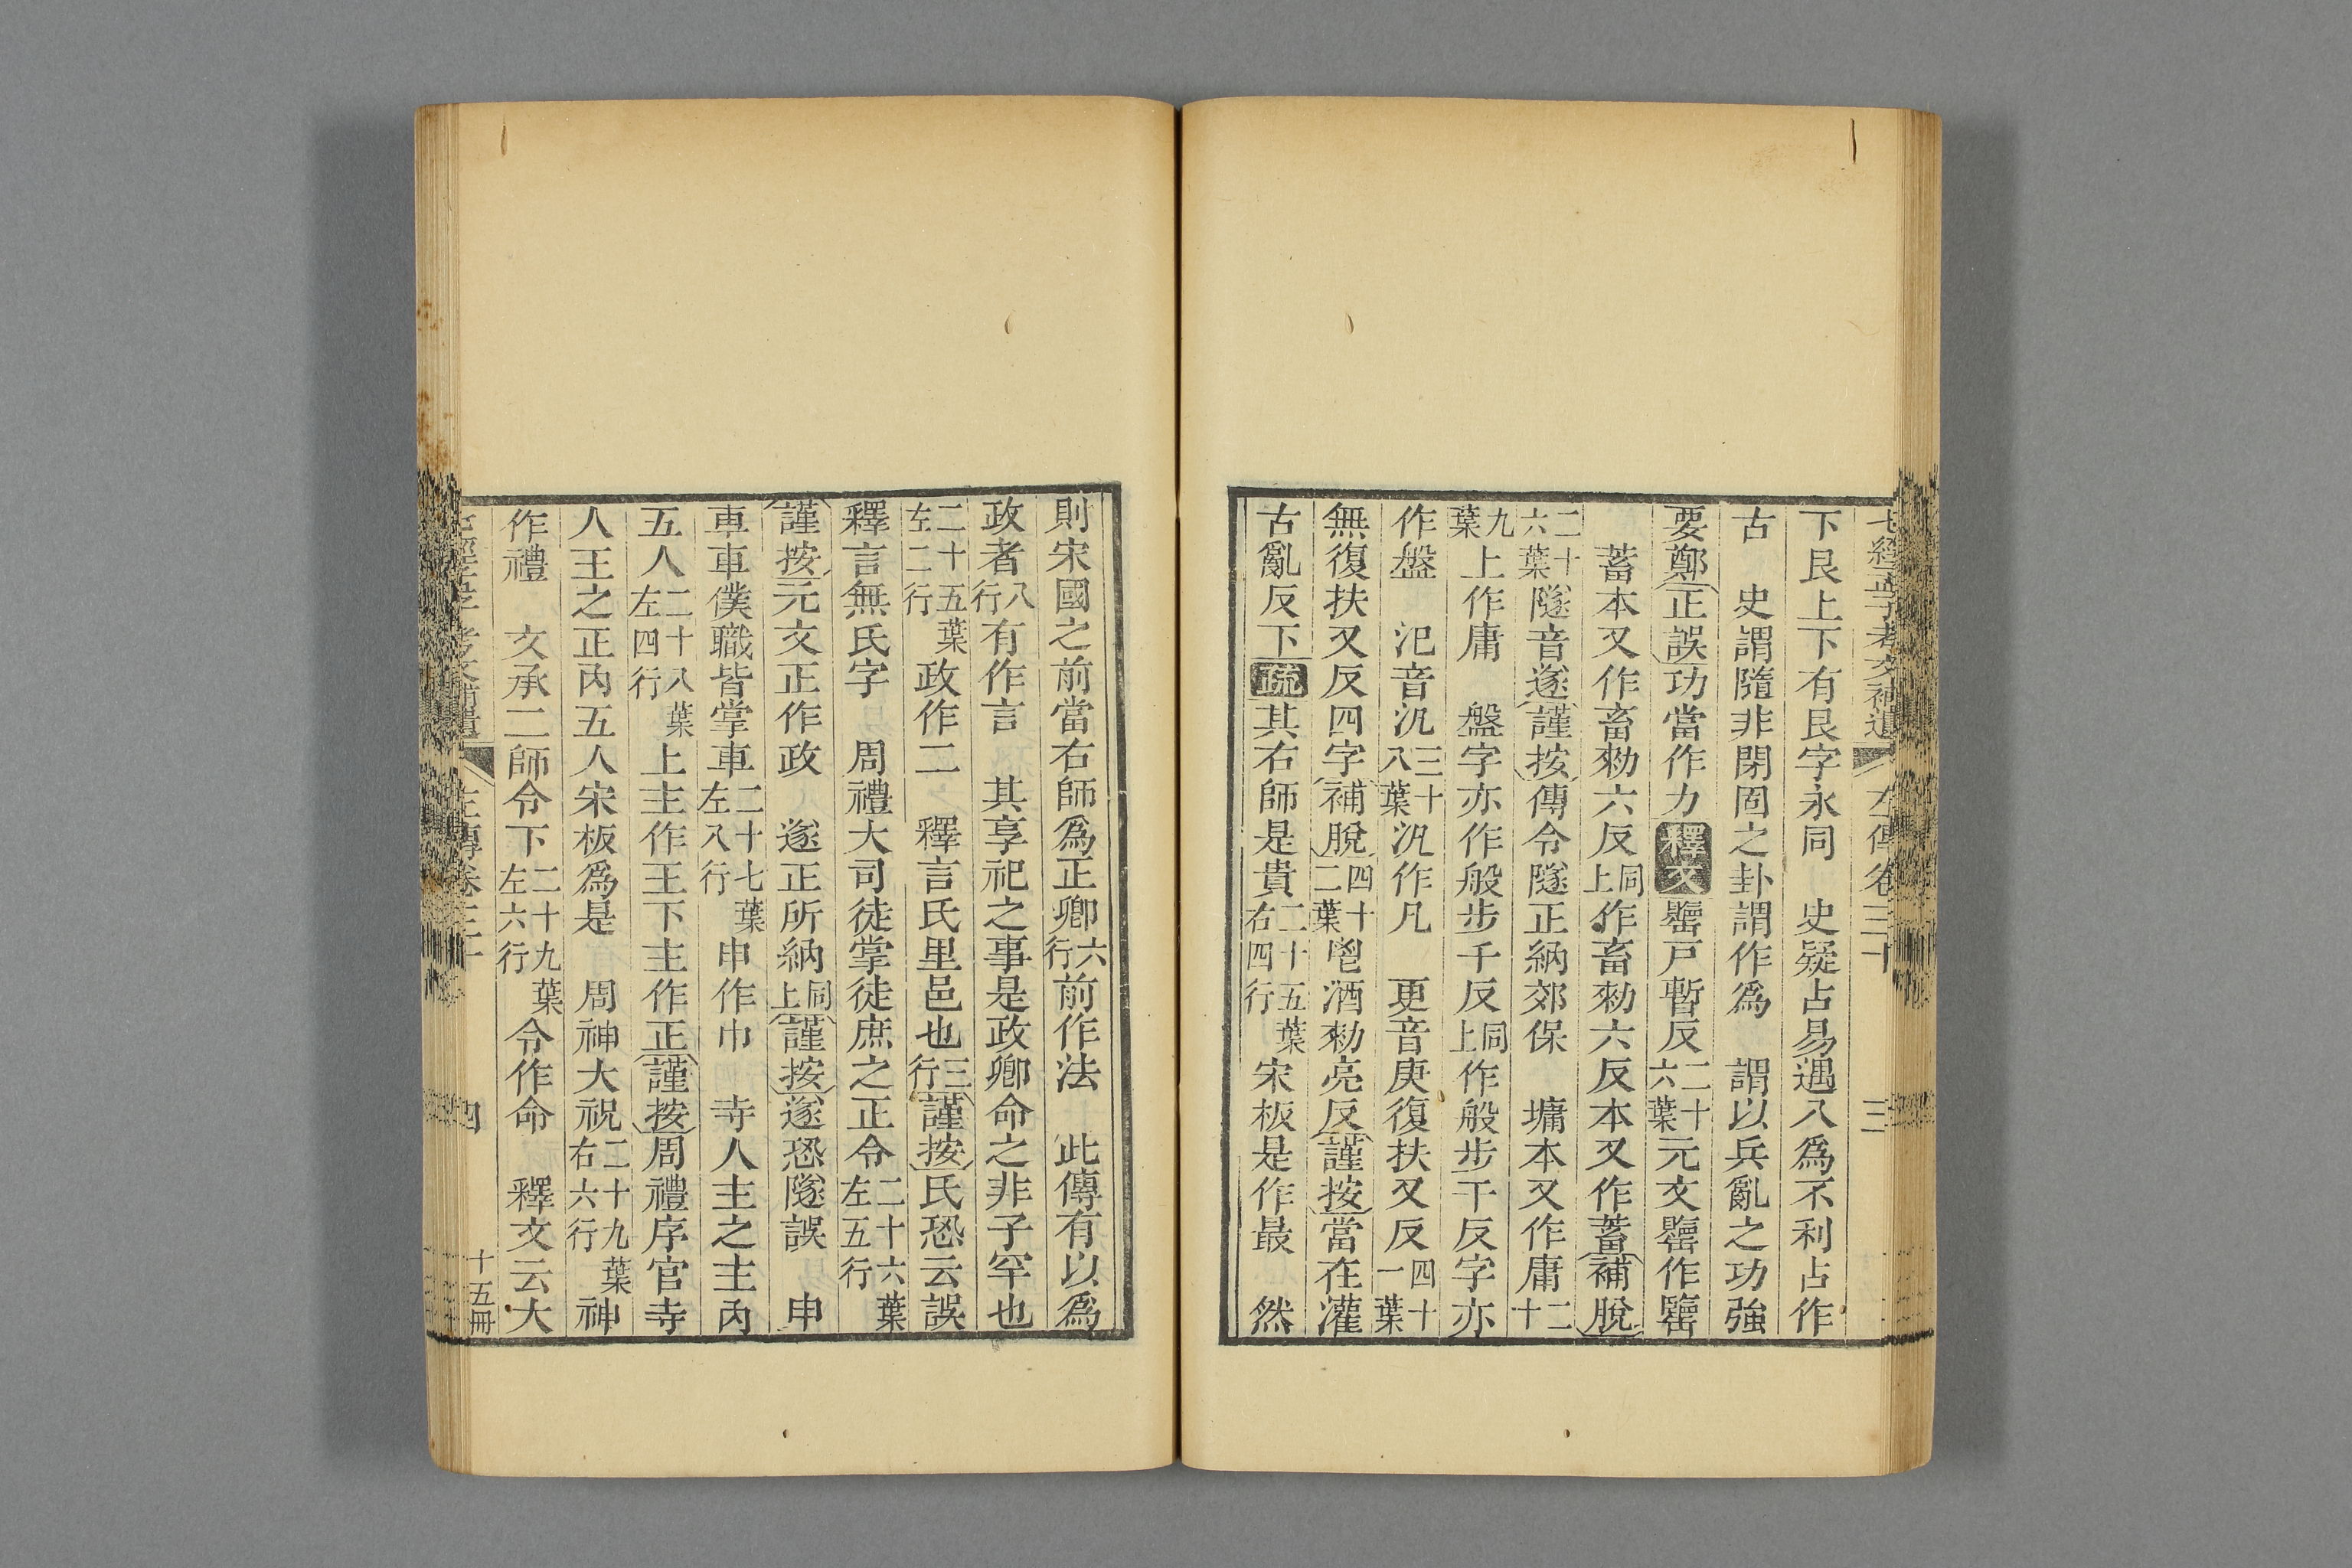 七經孟子考文補遺 左傳卷三十 三
下艮上下有艮字永同 史疑占易遇八爲不利占作
古 史謂隨非閉固之卦謂作爲 謂以兵亂之功強
要鄭正誤功當作力釋文罌戸暫反二十六葉元文罌作甖
蓄本又作畜勑六反同上作畜勑六反本又作蓄補脫
二十六葉隧音遂謹按傳令隧正納郊保 墉本又作庸二十
九葉上作庸 盤字亦作般步千反同上作般步干反字亦
作盤 汜音汎三十八葉汎作凡 更音庚復扶又反四十一葉
無復扶又反四字補脫四十二葉鬯酒勑亮反謹按當在灌
古亂反下疏其右師是貴二十五葉右四行宋板是作最 然
則宋國之前當右師爲正卿六行前作法 此傳有以爲
政者八行有作言 其享祀之事是政卿命之非子罕也
二十五葉左二行政作二 釋言氏里邑也三行謹按氏恐云誤
釋言無氏字 周禮大司徒掌徒庶之正令二十六葉左五行
謹按元文正作政 遂正所納同上謹按遂恐隧誤 申
車車僕職皆掌車二十七葉左八行申作巾 寺人主之主丙
五人二十八葉左四行上主作王下主作正謹按周禮序官寺
人王之正內五人宋板爲是 周神大祝二十九葉右六行神
作禮 文承二師令下二十九葉左六行令作命 釋文云大
左傳卷三十 四 十五冊